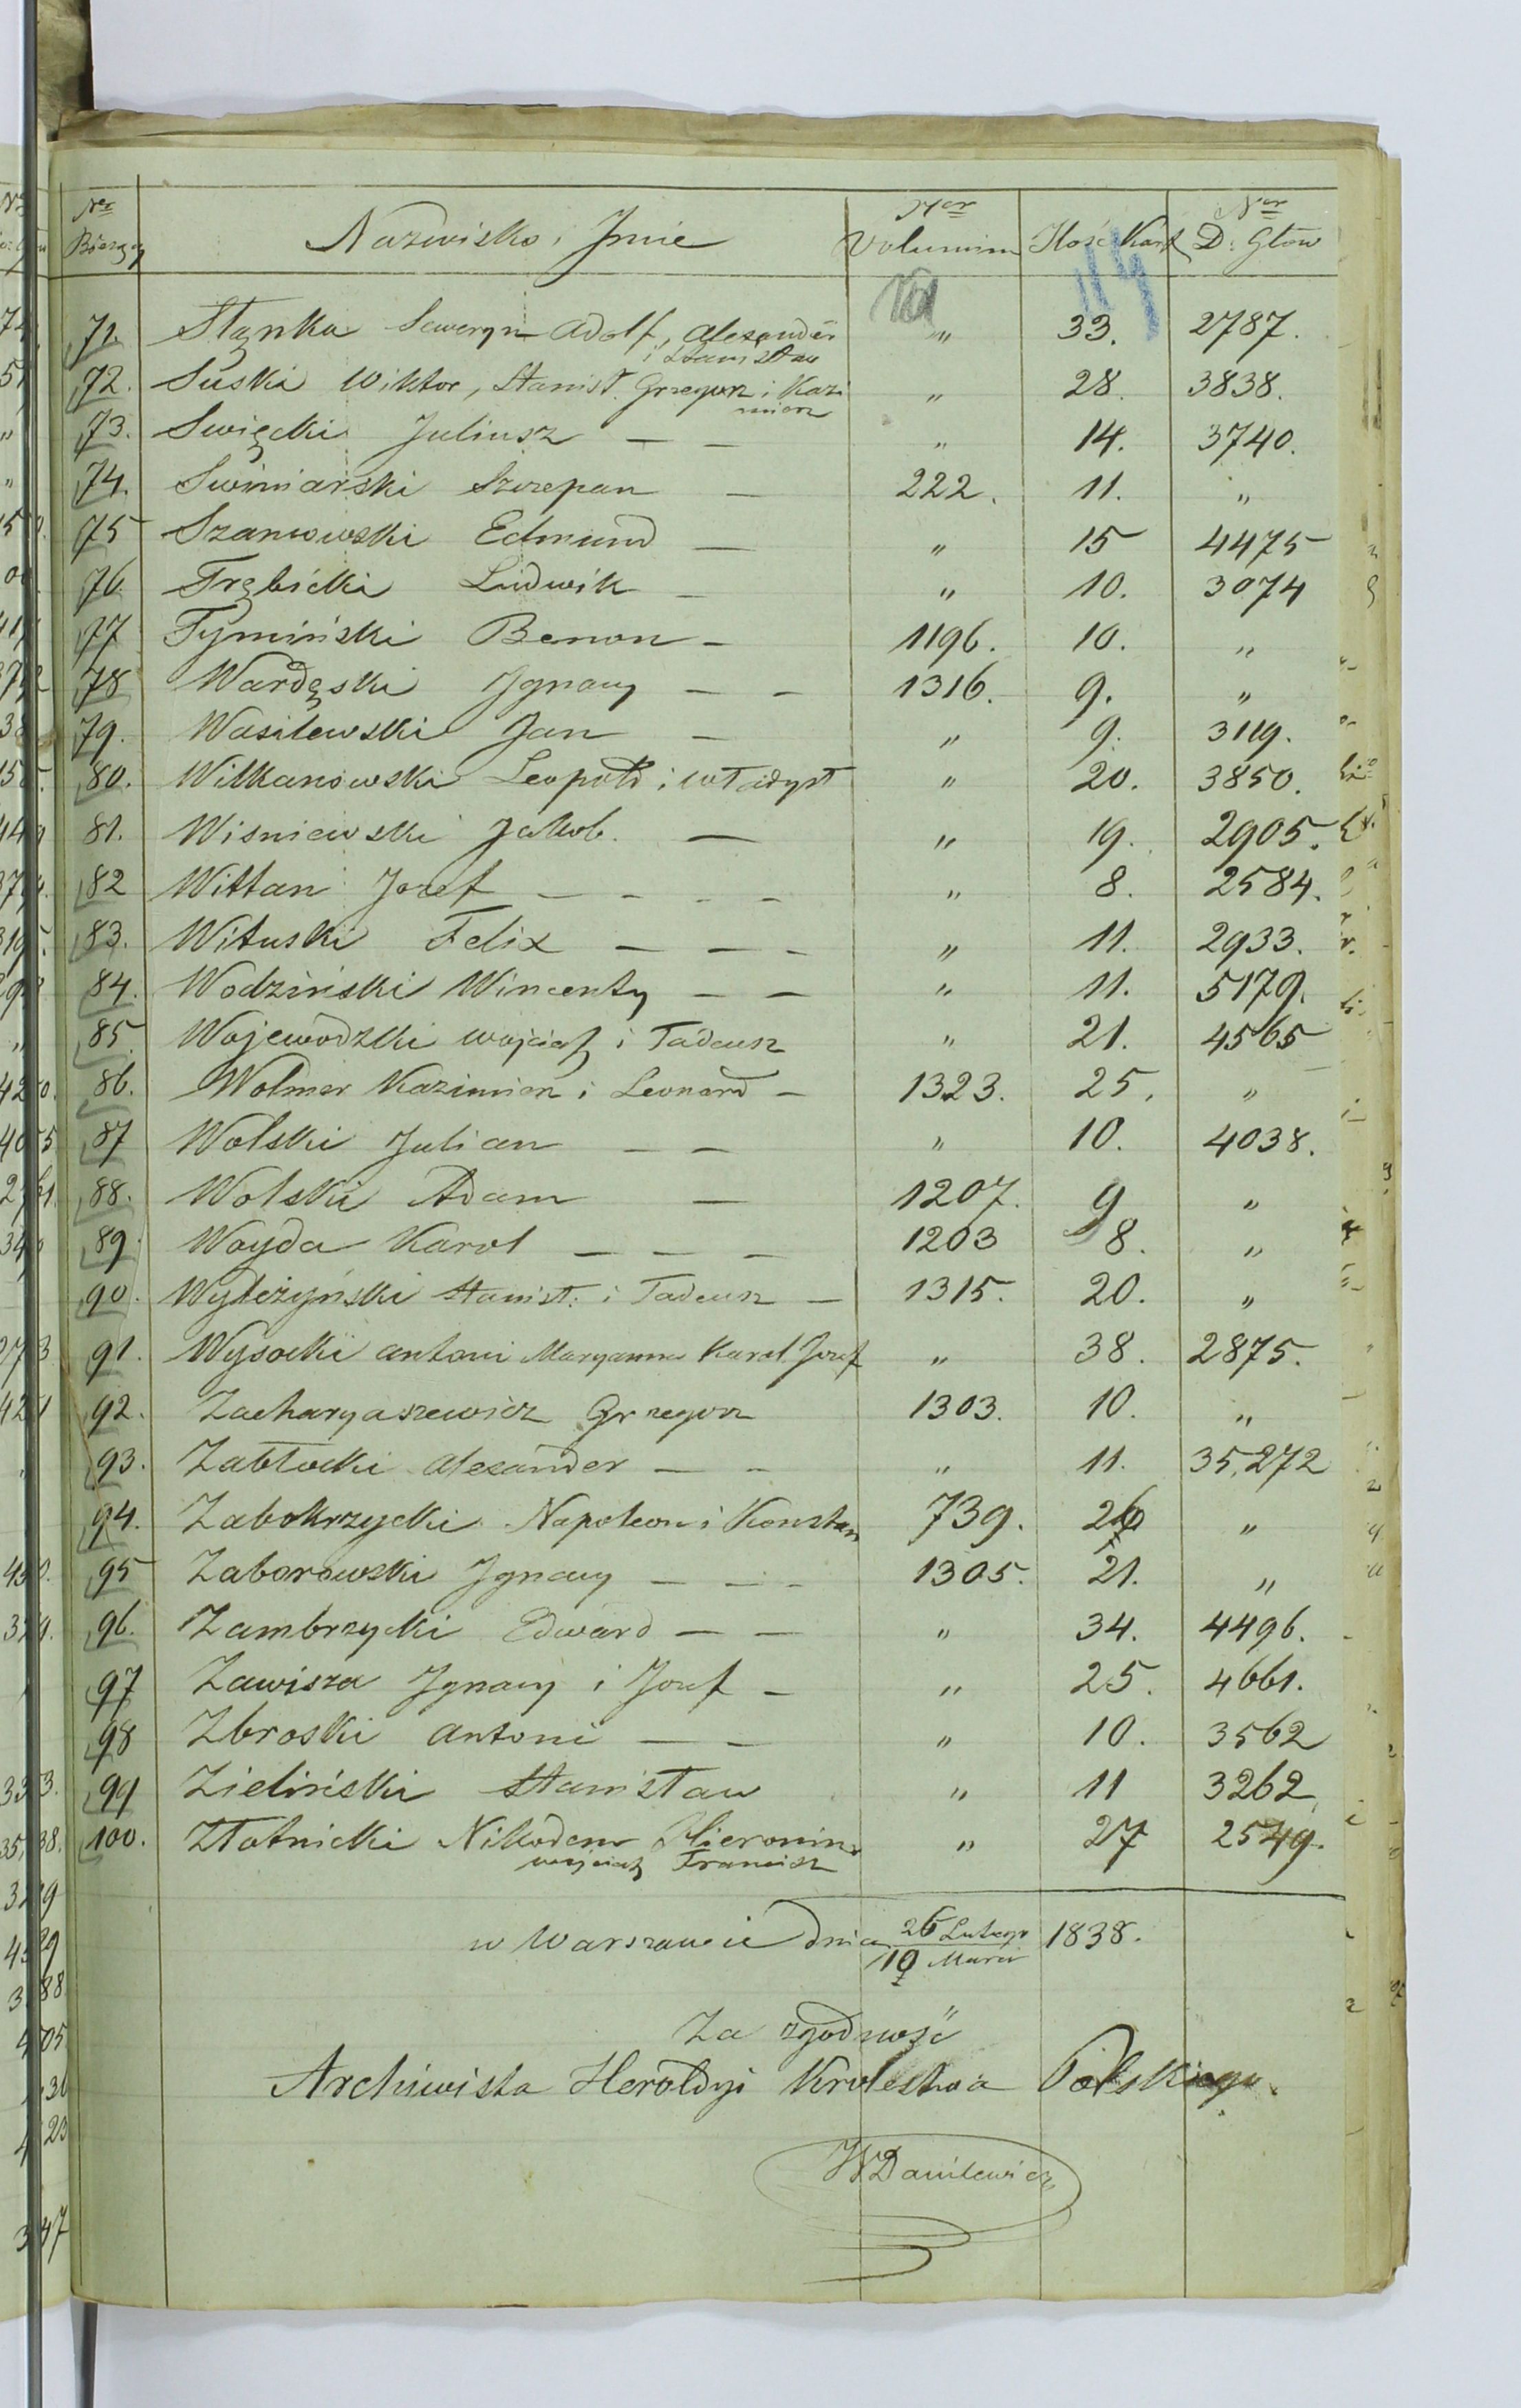 Ner Bieżący Nazwisko i Jmie Ner Volumin Ilość Kart Ner D: Głów
114
71. Stąnka Seweryn Adolf, Alexander i Stanisław " 33. 2787.
72. Suski Wiktor, Stanisł. Grzegorz i Kazimierz " 28. 3838.
73. Swięcki Juliusz — — " 14. 3740.
74. Swiniarski Szczepan — 222. 11. "
75 Szaniowski Edmund — " 15 4475
76. Trębicki Ludwik — " 10. 3074
77 Tymiński Benon — 1196. 10. "
78 Wardęski Jgnacy — — 1316. 9. "
79. Wasilewski Jan — " 9. 3119.
80. Wilkanowski Leopold i Władysł " 20. 3850.
81. Wisniewski Jakob. — " 19. 2905.
82 Wittan Jozef — — — — " 8. 2584.
83. Wituski Felix — — — " 11. 2933.
84. Wodziński Wincenty — — " 11. 5179.
85. Wojewodzki Wojciech i Tadeusz " 21. 4565
86. Wolmer Kazimierz i Leonard — 1323. 25. "
87 Wolski Julian — — " 10. 4038.
88. Wolski Adam — 1207. 9 "
89. Woyda Karol — — — 1203 8. "
90. Wyleżyński Stanisł: i Tadeusz — 1315. 20. "
91. Wysocki Antoni Maryanna Karol Jozef " 38. 2875.
92. Zacharyaszewicz Grzegorz 1303. 10. "
93. Zabłocki Alexander — — " 11. 35,272
94. Zabokrzycki Napoleon i Konstan 739. 26 "
95 Zaborowski Jgnacy — — — 1305. 21. "
96. Zambrzycki Edward — — " 34. 4496.
97 Zawisza Jgnacy i Jozef — " 25. 4661.
98 Zbroski Antoni — — " 10. 3562
99 Zieliński Stanisław " 11 3262
100. Złotnicki Nikodem Hieronim Wojciech Francisz " 27 2549.
w Warszawie dnia 26 Lutego / 10 Marca 1838.
Za zgodność
Archiwista Heroldyi Krolestwa Polskiego.
W Danilewicz